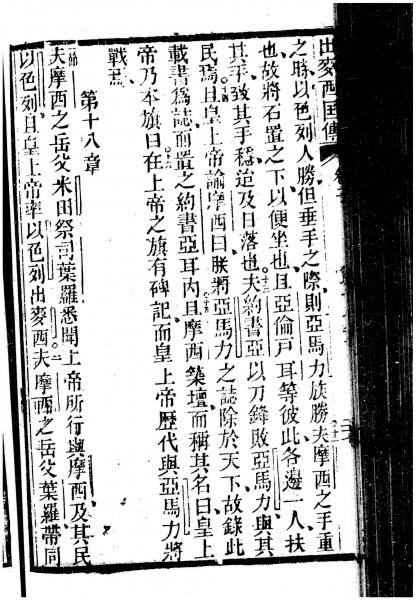 出麥西国傳
之時以色列人勝但垂手之際則亞馬力族勝夫摩西之手重
也故將石置之下以便坐也且亞倫戸耳等彼此各邊一人扶
其手致其手穩迨及日落也夫約書亞以刀鋒敗亞馬力與其
民焉且皇上帝諭摩西曰朕將亞馬力之誌除於天下故錄此
載書爲誌而置之約書亞耳內且摩西築壇而稱其名曰皇上
帝乃本旗曰在上帝之旗有碑記而皇上帝歷代與亞馬力將
戰焉
第十八章
夫摩西之岳父米田祭司葉羅悉聞上帝所行與摩西及其民
以色列且皇上帝率以色列出麥西夫摩西之岳父葉羅帶同